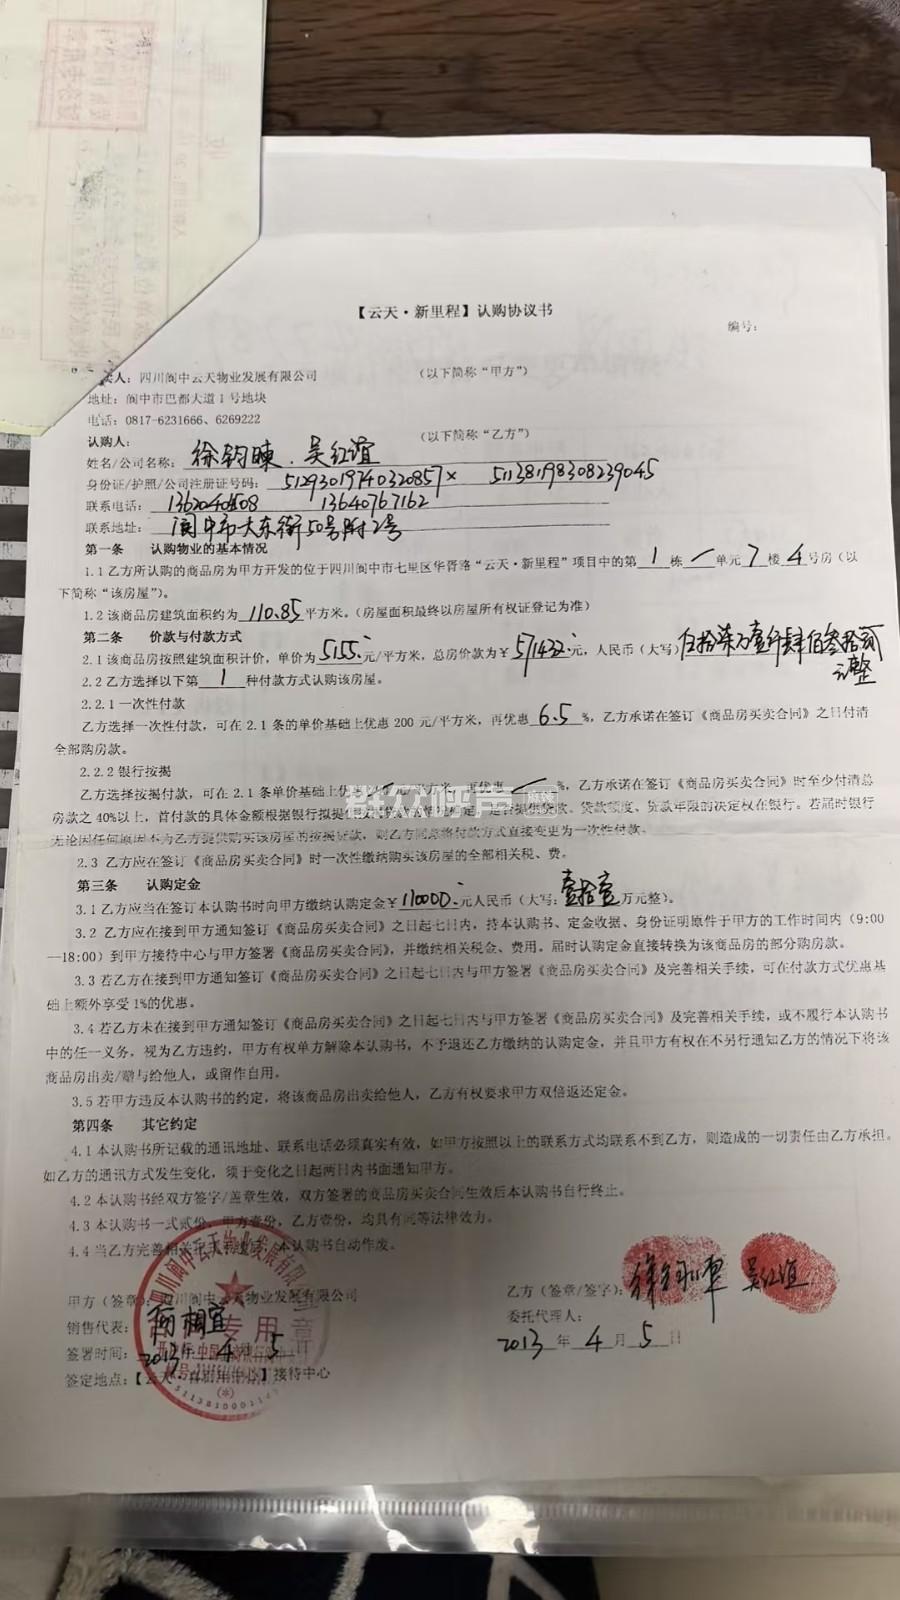 【云天·新里程】认购协议书
编号：
卖人：四川阆中云天物业发展有限公司 （以下简称“甲方”）
地址：阆中市巴都大道1号地块
电话：0817-6231666、6269222
认购人： （以下简称“乙方”）
姓名/公司名称：徐钧暕．吴红谊
身份证/护照/公司注册证号码：51293019740320857× 511381198308239045
联系电话： 13640767162
联系地址：阆中市大东街50号附2号
第一条 认购物业的基本情况
1.1 乙方所认购的商品房为甲方开发的位于四川阆中市七里区华胥路“云天·新里程”项目中的第1栋一单元7楼4号房（以
下简称“该房屋”）。
1.2 该商品房建筑面积约为110.85平方米。（房屋面积最终以房屋所有权证登记为准）
第二条 价款与付款方式
2.1 该商品房按照建筑面积计价，单价为5155元/平方米，总房价款为￥571432元，人民币（大写）伍拾柒万壹仟肆佰叁拾贰
元整
2.2 乙方选择以下第1种付款方式认购该房屋。
2.2.1 一次性付款
乙方选择一次性付款，可在2.1条的单价基础上优惠200元/平方米，再优惠6.5%，乙方承诺在签订《商品房买卖合同》之日付清
全部购房款。
2.2.2 银行按揭
乙方选择按揭付款，可在2.1条单价基础上优 平方米，再优惠 %，乙方承诺在签订《商品房买卖合同》时至少付清总
群众呼声
房款之40%以上，首付款的具体金额根据银行拟提 贷款、贷款额度、贷款年限的决定权在银行。若届时银行
无论因任何原因不为乙方提供购买该房屋的按揭贷款，则乙方同意将付款方式直接变更为一次性付款。
2.3 乙方应在签订《商品房买卖合同》时一次性缴纳购买该房屋的全部相关税、费。
第三条 认购定金
3.1 乙方应当在签订本认购书时向甲方缴纳认购定金￥110000元人民币（大写：壹拾壹万元整）。
3.2 乙方应在接到甲方通知签订《商品房买卖合同》之日起七日内，持本认购书、定金收据、身份证明原件于甲方的工作时间内（9:00
—18:00）到甲方接待中心与甲方签署《商品房买卖合同》，并缴纳相关税金、费用。届时认购定金直接转换为该商品房的部分购房款。
3.3 若乙方在接到甲方通知签订《商品房买卖合同》之日起七日内与甲方签署《商品房买卖合同》及完善相关手续，可在付款方式优惠基
础上额外享受1%的优惠。
3.4 若乙方未在接到甲方通知签订《商品房买卖合同》之日起七日内与甲方签署《商品房买卖合同》及完善相关手续，或不履行本认购书
中的任一义务，视为乙方违约，甲方有权单方解除本认购书，不予退还乙方缴纳的认购定金，并且甲方有权在不另行通知乙方的情况下将该
商品房出卖/赠与给他人，或留作自用。
3.5 若甲方违反本认购书的约定，将该商品房出卖给他人，乙方有权要求甲方双倍返还定金。
第四条 其它约定
4.1 本认购书所记载的通讯地址、联系电话必须真实有效，如甲方按照以上的联系方式均联系不到乙方，则造成的一切责任由乙方承担。
如乙方的通讯方式发生变化，须于变化之日起两日内书面通知甲方。
4.2 本认购书经双方签字/盖章生效，双方签署的商品房买卖合同生效后本认购书自行终止。
4.3 本认购书一式贰份，甲方壹份，乙方壹份，均具有同等法律效力。
4.4 当乙方完善相关 本认购书自动作废。
甲方（签章）：四川阆中云天物业发展有限公司
乙方（签章/签字）： 吴红谊
销售代表：
委托代理人：
签署时间：2013年4月5日
2013年4月5日
签定地点：【云天· 中心】接待中心
专用章